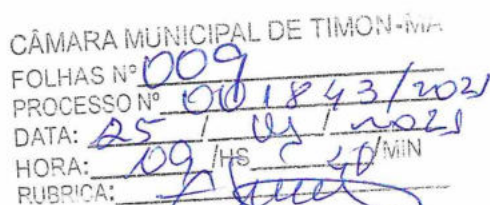 CÂMARA MUNICIPAL DE TIMON-MA
FOLHAS Nº 009
PROCESSO Nº 001843/2021
DATA: 25 / / 2021
HORA: 09 /HS 40 /MIN
RUBRICA: